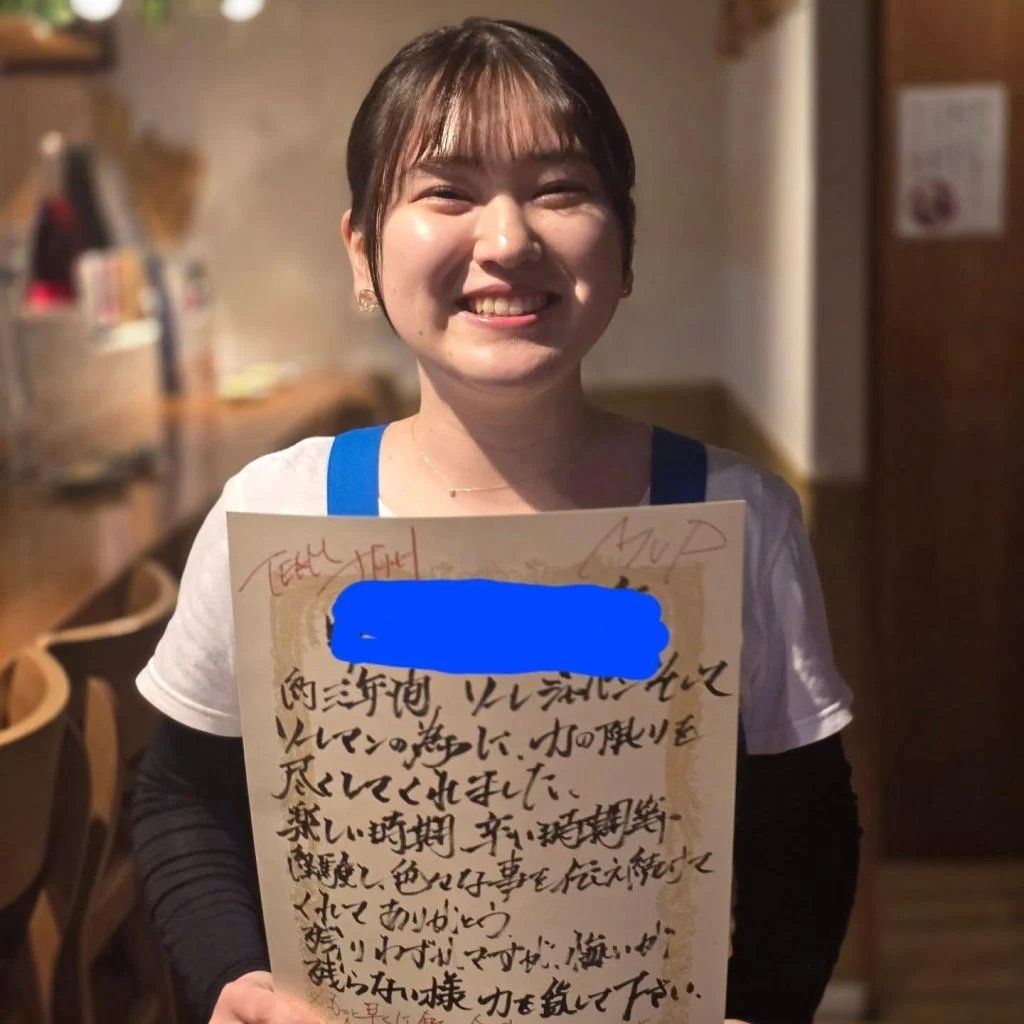 TEAM MVP
約三年間、ソーレジャパンそして
ソーレマンの為に、力の限りを
尽くしてくれました。
楽しい時期、辛い時期等
経験し、色々な事を伝え続けて
くれてありがとう
残りわずかですが、悔いが
残らない様、力を貸して下さい。